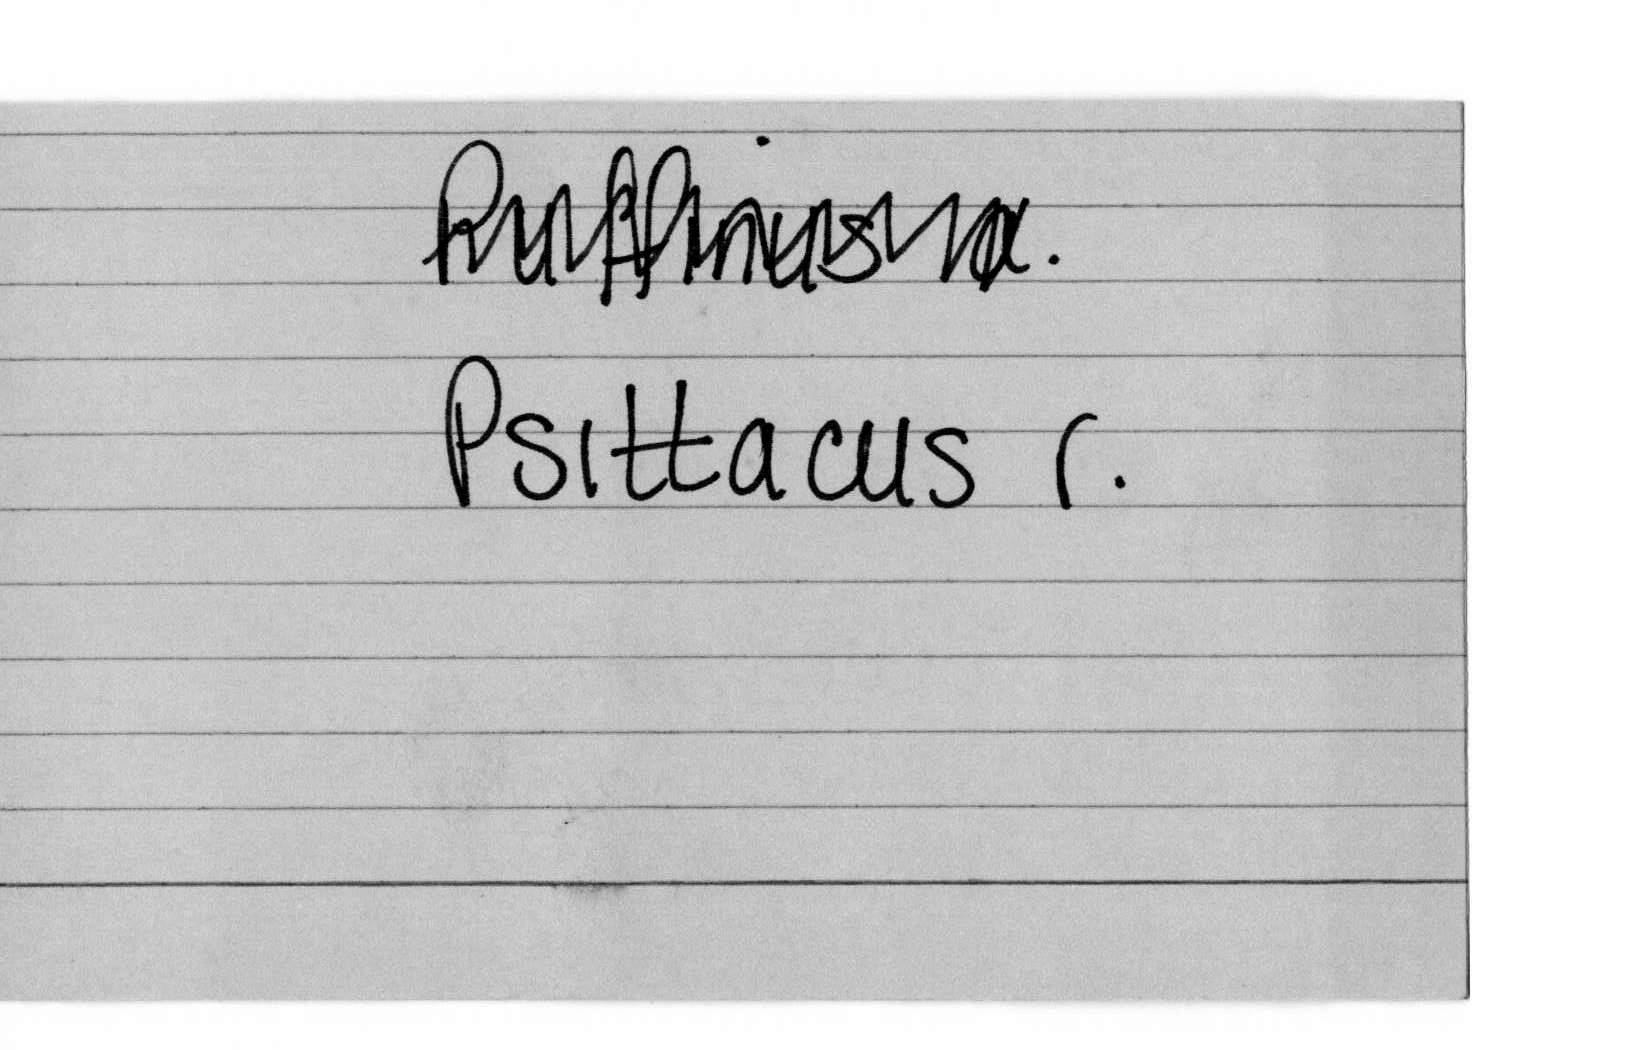 Puffinus a.
Psittacus r.